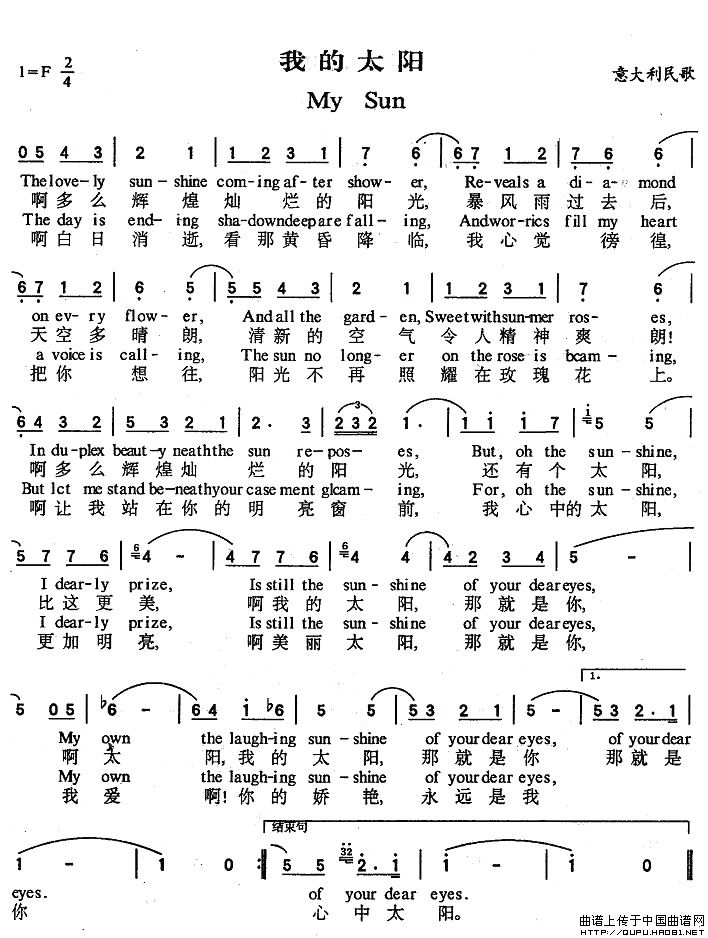 我的太阳
1=F 2/4
意大利民歌
My Sun
0 5 4 3 | 2 1 | 1 2 3 1 | 7 6 | 6 7 1 2 | 7 6 6 | 6
The love-ly sun-shine com-ing af-ter show-er, Re-veals a di-a-mond
啊多么辉煌灿烂的阳光,暴风雨过去后,
The day is end-ing sha-downdeepare fall-ing, Andwor-rics fill my heart
啊白日消逝,看那黄昏降临,我心觉徬徨,
6 7 1 2 | 6 5 | 5 5 4 3 | 2 1 | 1 2 3 1 | 7 6
on ev-ry flow-er, And all the gard-en, Sweetwithsun-mer ros-es,
天空多晴朗,清新的空气令人精神爽朗!
a voice is call-ing, The sun no long-er on the rose is bcam-ing,
把你想往,阳光不再照耀在玫瑰花上。
6 4 3 2 | 5 3 2 1 | 2 · 3 | 2 3 2 | 1 · | 1 i i 7 | 5 5
In du-plex beaut-y neaththe sun re-pos-es, But, oh the sun-shine,
啊多么辉煌灿烂的阳光,还有个太阳,
But lct me stand be-neathyour case ment glcam-ing, For, oh the sun-shine,
啊让我站在你的明亮窗前,我心中的太阳,
5 7 7 6 | 4 - | 4 7 7 6 | 4 4 | 4 2 3 4 | 5 -
I dear-ly prize, Is still the sun-shine of your deareyes,
比这更美,啊我的太阳,那就是你,
I dear-ly prize, Is still the sun-shine of your deareyes,
更加明亮,啊美丽太阳,那就是你,
1.
5 0 5 | ♭6 - | 6 4 i ♭6 | 5 5 | 5 3 2 1 | 5 3 2 · 1
My own the laugh-ing sun-shine of yourdear eyes, of yourdear
啊太阳,我的太阳,那就是你那就是
My own the laugh-ing sun-shine of yourdear eyes,
我爱啊!你的娇艳,永远是我
结束句
1 - | 1 0 :| 5 5 2 · 1 | 1 - | 1 0
eyes. of your dear eyes.
你心中太阳。
曲谱上传于中国曲谱网
HTTP://QUPU.HAO81.NET